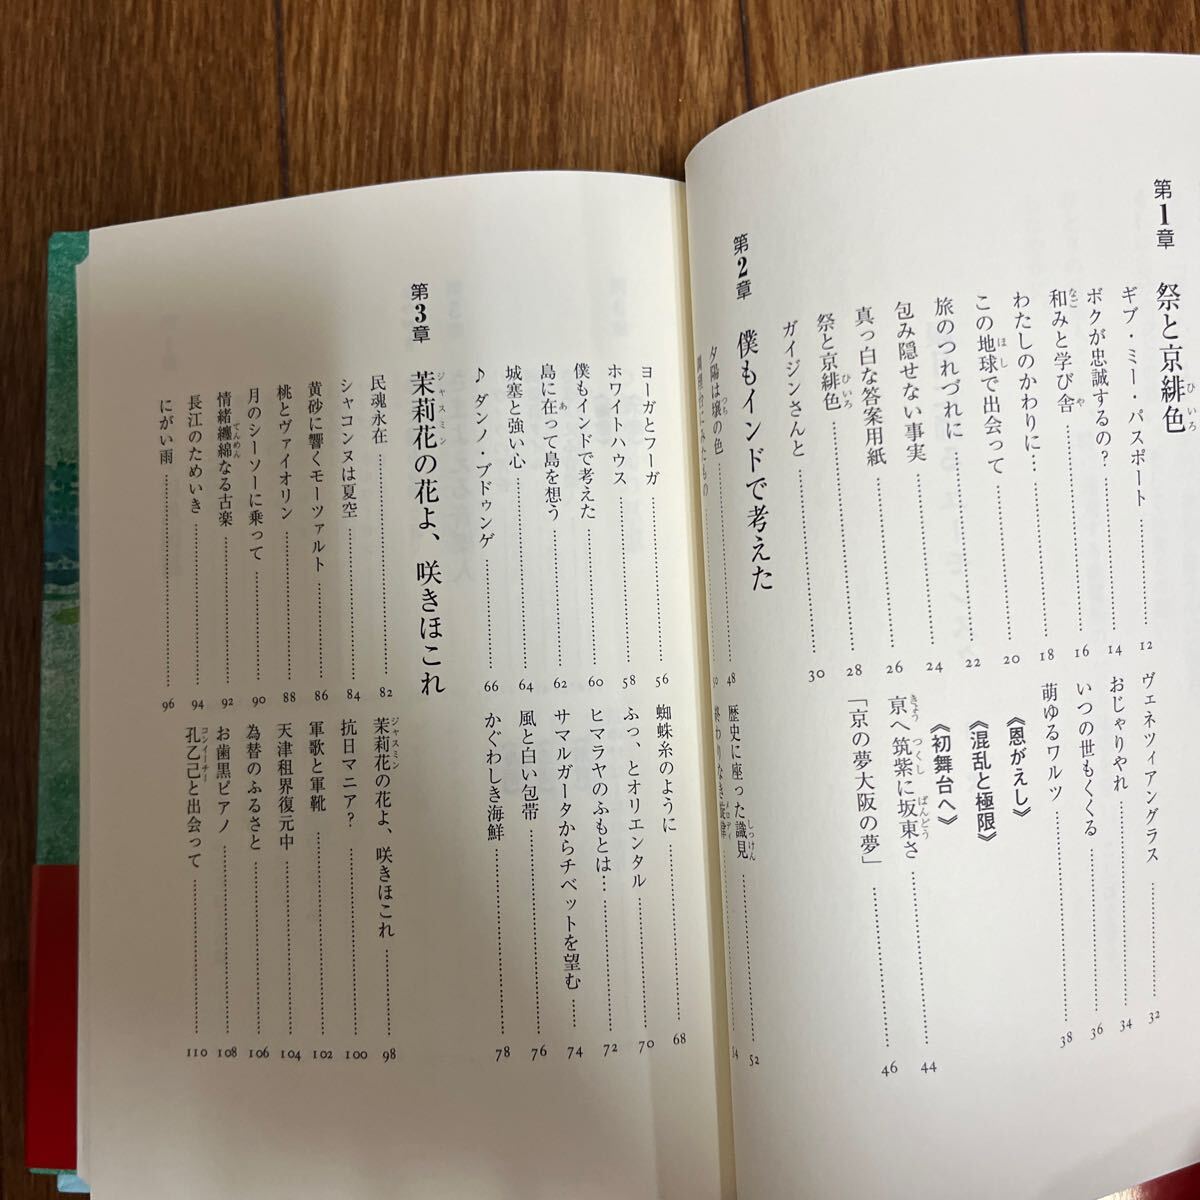 第1章 祭と京緋色
ギブ・ミー・パスポート 12
ボクが忠誠するの? 14
和みと学び舎 16
わたしのかわりに… 18
この地球で出会って 20
旅のつれづれに 22
包み隠せない事実 24
真っ白な答案用紙 26
祭と京緋色 28
ガイジンさんと 30
ヴェネツィアングラス 32
おじゃりやれ 34
いつの世もくくる 36
萌ゆるワルツ 38
《恩がえし》
《混乱と極限》
《初舞台へ》
京へ筑紫に坂東さ 44
「京の夢大阪の夢」 46
第2章 僕もインドで考えた
夕陽は壌の色 48
調理台にみたもの 50
歴史に座った識見 52
終わりなき旋律 54
ヨーガとフーガ 56
ホワイトハウス 58
僕もインドで考えた 60
島に在って島を想う 62
城塞と強い心 64
♪ダンノ・ブドゥンゲ 66
蜘蛛糸のように 68
ふっ、とオリエンタル 70
ヒマラヤのふもとは… 72
サマルガータからチベットを望む 74
風と白い包帯 76
かぐわしき海鮮 78
第3章 茉莉花の花よ、咲きほこれ
民魂永在 82
シャコンヌは夏空 84
黄砂に響くモーツァルト 86
桃とヴァイオリン 88
月のシーソーに乗って 90
情緒纏綿なる古楽 92
長江のためいき 94
にがい雨 96
茉莉花の花よ、咲きほこれ 98
抗日マニア? 100
軍歌と軍靴 102
天津租界復元中 104
為替のふるさと 106
お歯黒ピアノ 108
孔乙己と出会って 110